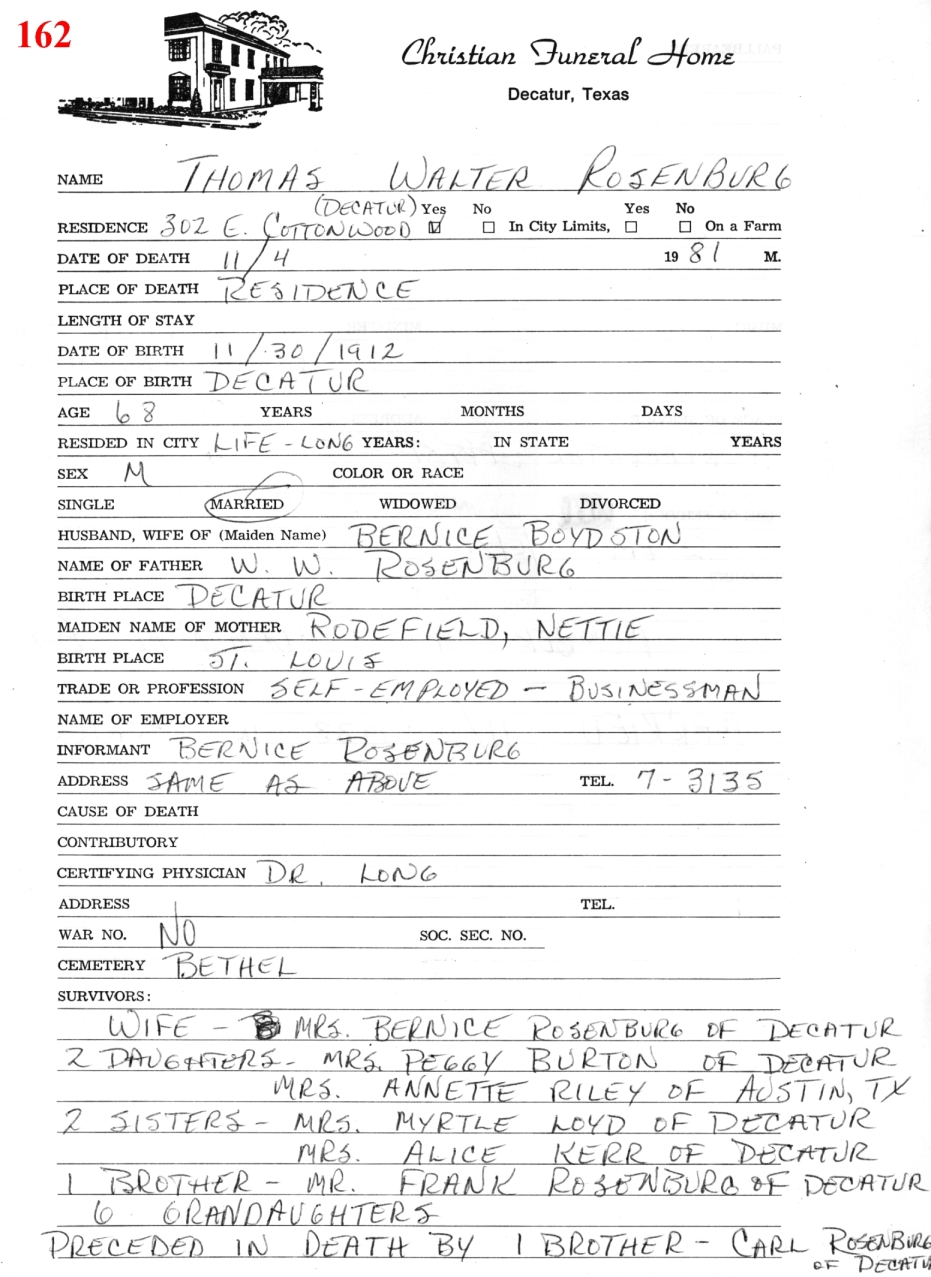 162
Christian Funeral Home
Decatur, Texas
NAME THOMAS WALTER ROSENBURG
(DECATUR) Yes No Yes No
RESIDENCE 302 E. COTTONWOOD ☑ ☐ In City Limits, ☐ ☐ On a Farm
DATE OF DEATH 11/4 1981 M.
PLACE OF DEATH RESIDENCE
LENGTH OF STAY
DATE OF BIRTH 11/30/1912
PLACE OF BIRTH DECATUR
AGE 68 YEARS MONTHS DAYS
RESIDED IN CITY LIFE-LONG YEARS: IN STATE YEARS
SEX M COLOR OR RACE
SINGLE MARRIED WIDOWED DIVORCED
HUSBAND, WIFE OF (Maiden Name) BERNICE BOYDSTON
NAME OF FATHER W. W. ROSENBURG
BIRTH PLACE DECATUR
MAIDEN NAME OF MOTHER RODEFIELD, NETTIE
BIRTH PLACE ST. LOUIS
TRADE OR PROFESSION SELF-EMPLOYED - BUSINESSMAN
NAME OF EMPLOYER
INFORMANT BERNICE ROSENBURG
ADDRESS SAME AS ABOVE TEL. 7-3135
CAUSE OF DEATH
CONTRIBUTORY
CERTIFYING PHYSICIAN DR. LONG
ADDRESS TEL.
WAR NO. NO SOC. SEC. NO.
CEMETERY BETHEL
SURVIVORS:
WIFE - MRS. BERNICE ROSENBURG OF DECATUR
2 DAUGHTERS - MRS. PEGGY BURTON OF DECATUR
MRS. ANNETTE RILEY OF AUSTIN, TX
2 SISTERS - MRS. MYRTLE LOYD OF DECATUR
MRS. ALICE KERR OF DECATUR
1 BROTHER - MR. FRANK ROSENBURG OF DECATUR
6 GRANDAUGHTERS
PRECEDED IN DEATH BY 1 BROTHER - CARL ROSENBURG
OF DECATUR